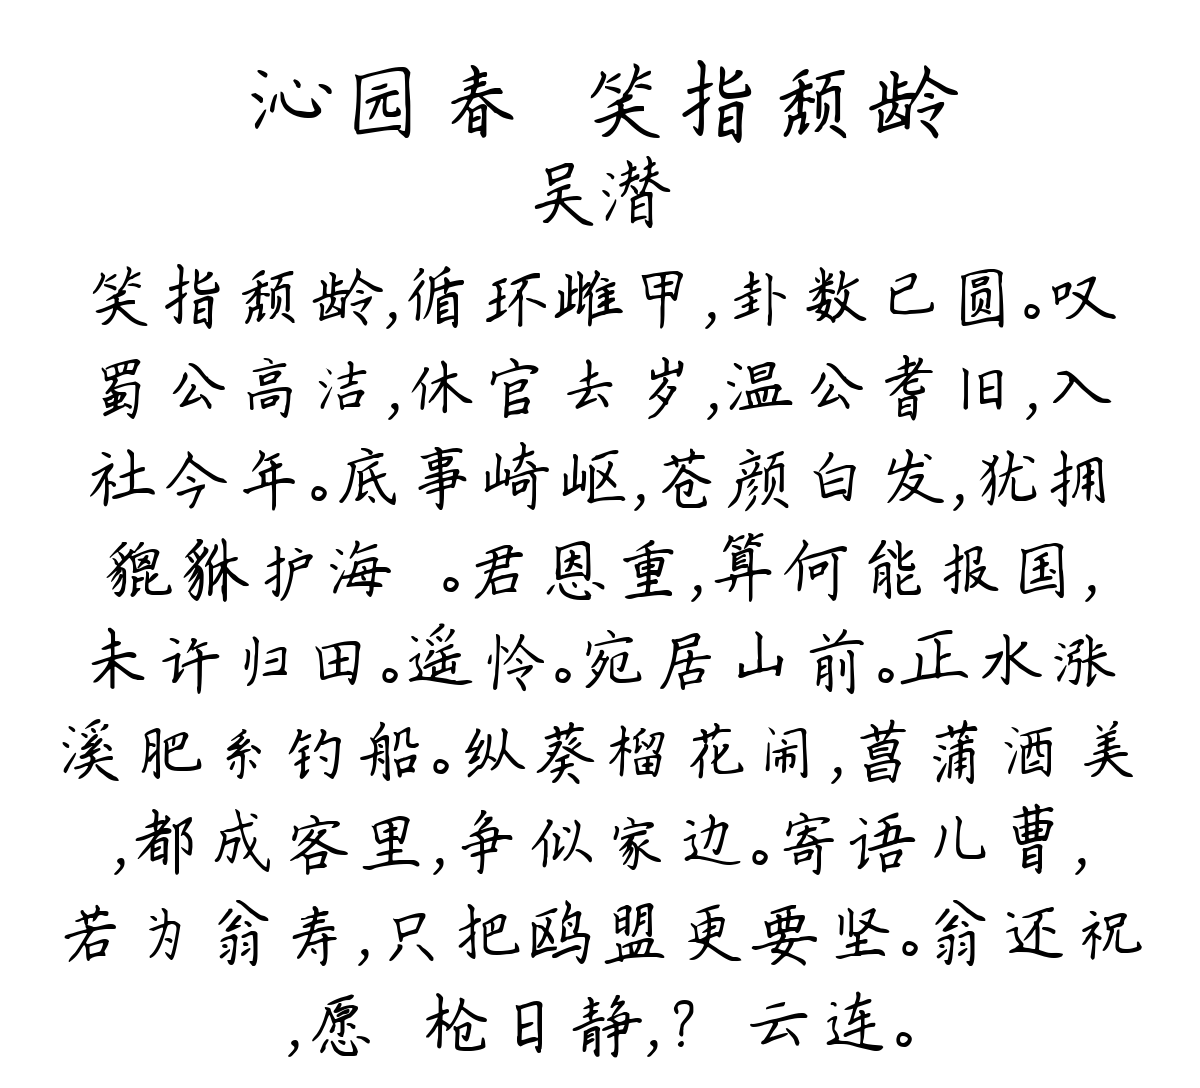 沁园春 笑指颓龄
吴潜
笑指颓龄,循环雌甲,卦数已圆。叹
蜀公高洁,休官去岁,温公耆旧,入
社今年。底事崎岖,苍颜白发,犹拥
貔貅护海 。君恩重,算何能报国,
未许归田。遥怜。宛居山前。正水涨
溪肥系钓船。纵葵榴花闹,菖蒲酒美
,都成客里,争似家边。寄语儿曹,
若为翁寿,只把鸥盟更要坚。翁还祝
,愿 枪日静,? 云连。